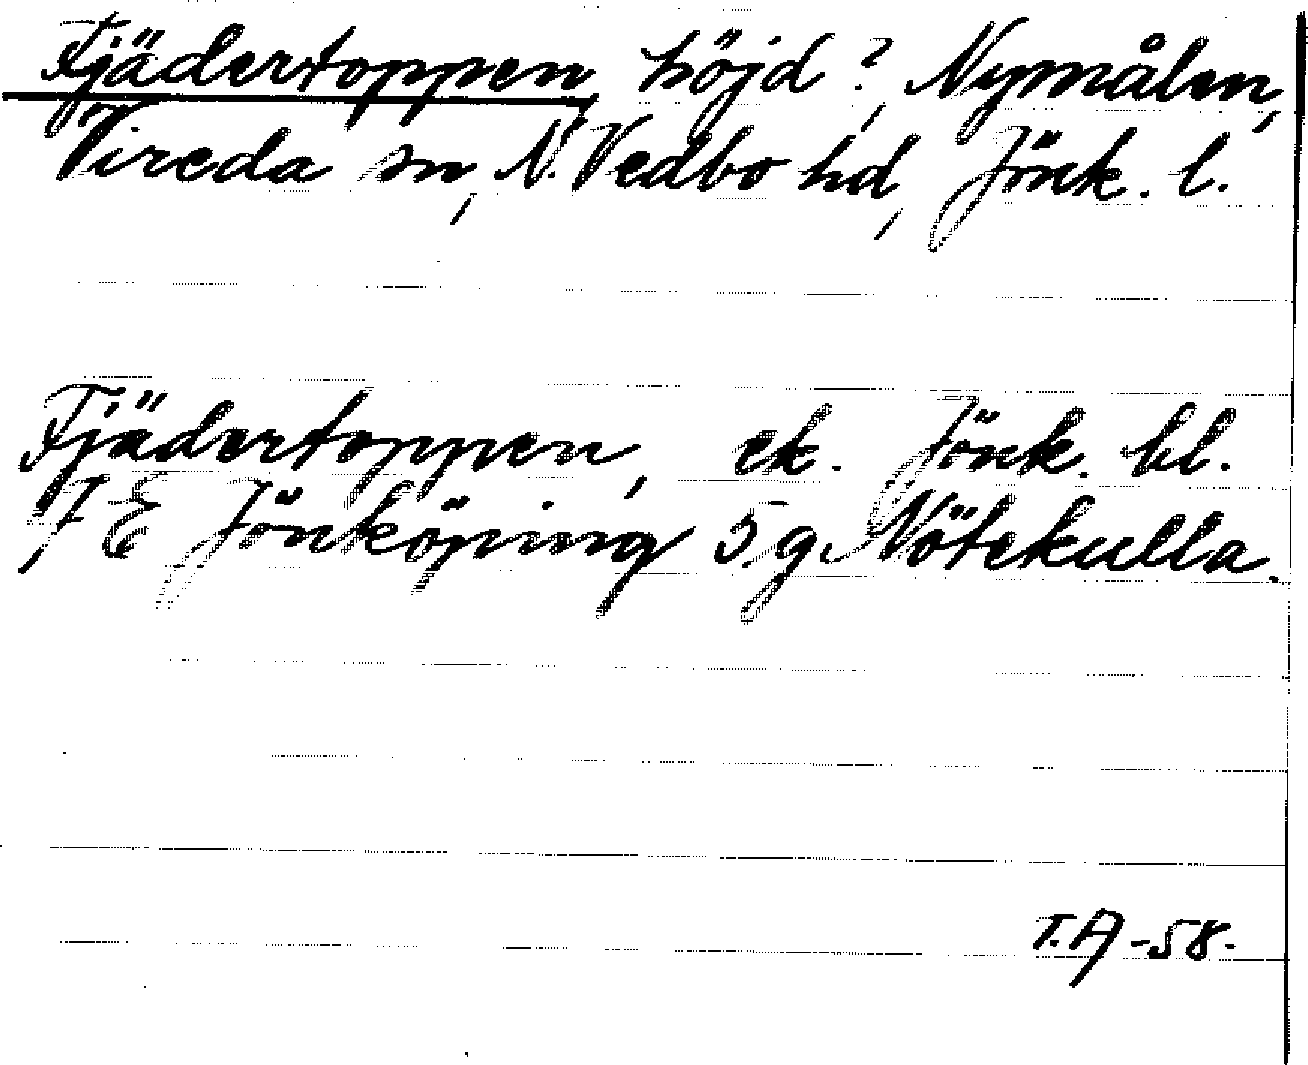 Fjädertoppen, höjd?, Nymålen,
Vireda sn, N. Vedbo hd, Jönk. l.
Fjädertoppen, ek. Jönk. bl.
7 E Jönköping 5 g Nötekulla.
T.A -58.